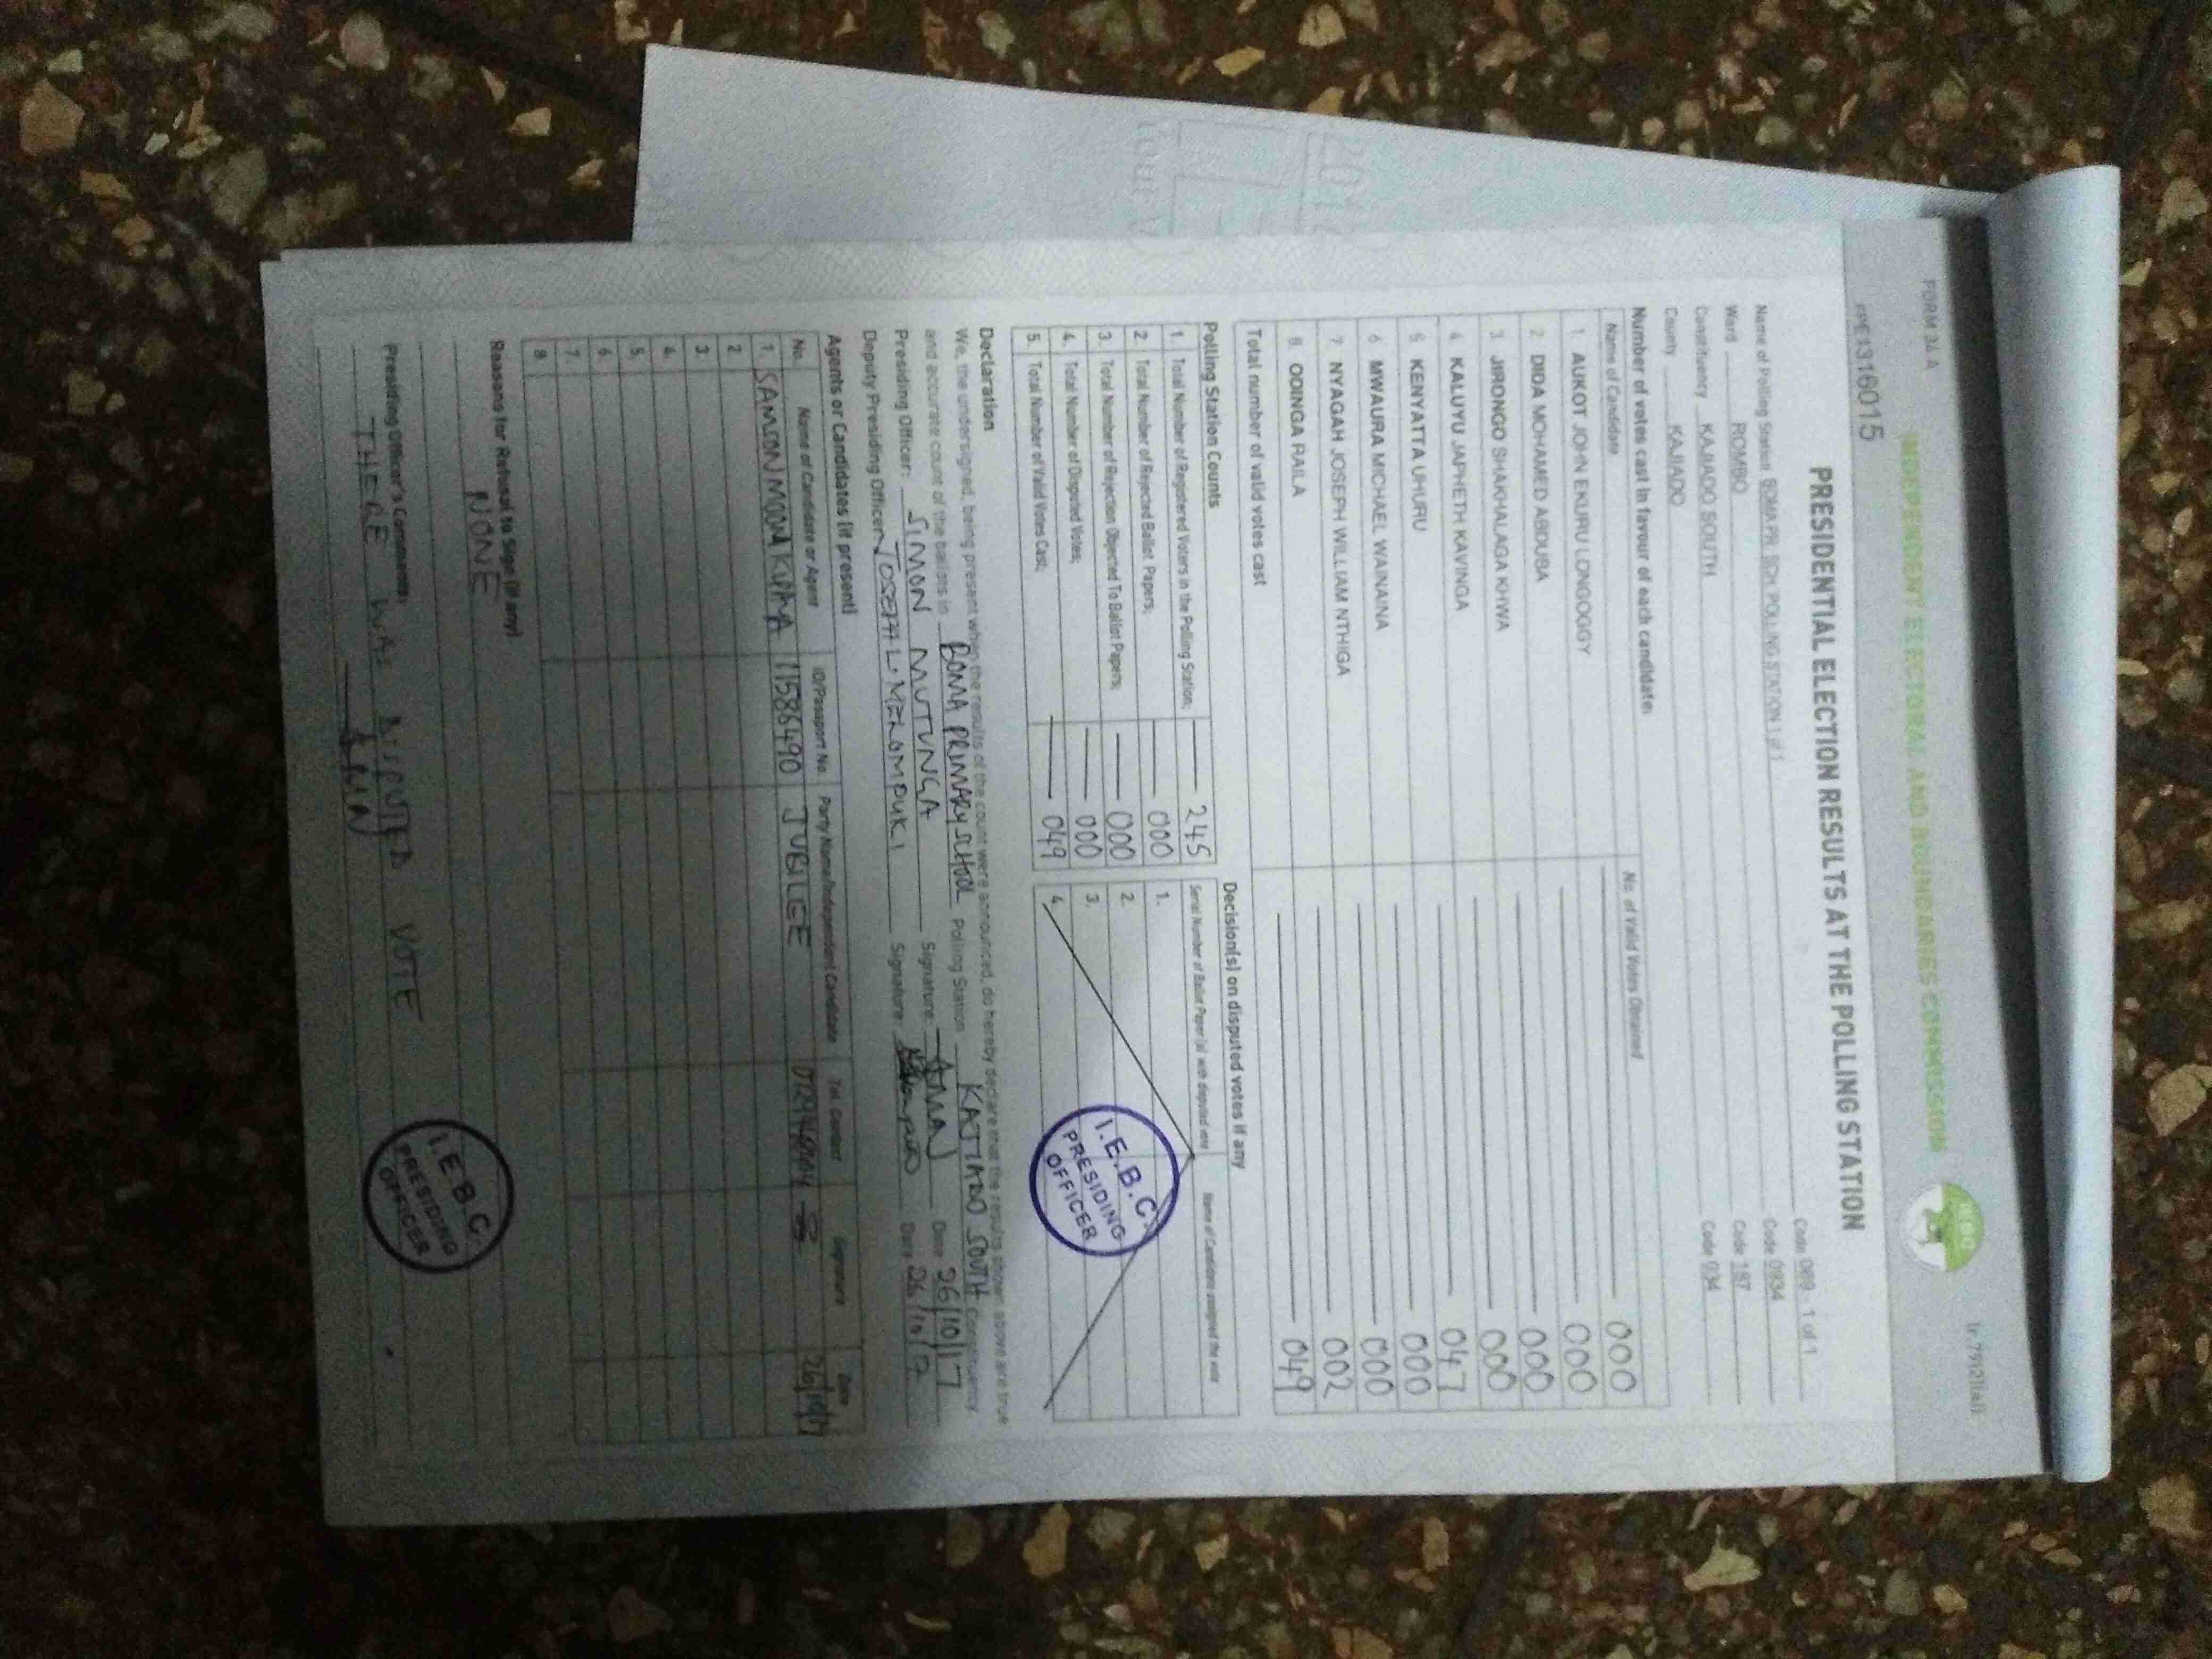 FORM 34 A
INDEPENDENT ELECTORAL AND BOUNDARIES COMMISSION
IEBC
PE1316015
PRESIDENTIAL ELECTION RESULTS AT THE POLLING STATION
Name of Polling Station BOMA PR. SCH. POLLING STATION 1 of 1 Code 069 1 of 1
Ward ROMBO Code 0934
Constituency KAJIADO SOUTH Code 187
County KAJIADO Code 034
Number of votes cast in favour of each candidate:
Name of Candidate No. of Valid Votes Obtained
1. AUKOT JOHN EKURU LONGOGGY 000
2 DIDA MOHAMED ABDUBA 000
3. JIRONGO SHAKHALAGA KHWA 000
4 KALUYU JAPHETH KAVINGA 000
5 KENYATTA UHURU 047
6 MWAURA MICHAEL WAINAINA 000
7 NYAGAH JOSEPH WILLIAM NTHIGA 000
8 ODINGA RAILA 002
Total number of valid votes cast 049
Polling Station Counts
1. Total Number of Registered Voters in the Polling Station; 245
2. Total Number of Rejected Ballot Papers; 000
3. Total Number of Rejection Objected To Ballot Papers; 000
4. Total Number of Disputed Votes; 000
5. Total Number of Valid Votes Cast; 049
Decision(s) on disputed votes if any
Serial Number of Ballot Paper (s) with disputed vote Name of Candidate assigned the vote
1.
2.
3.
4.
I.E.B.C.
PRESIDING
OFFICER
Declaration
We, the undersigned, being present when the results of the count were announced, do hereby declare that the results shown above are true
and accurate count of the ballots in BOMA PRIMARY SCHOOL Polling Station KAJIADO SOUTH Constituency
Presiding Officer: SIMON MUTUNGA Signature: Date 26/10/17
Deputy Presiding Officer JOSEPH L. Signature: Date 26/10/17
Agents or Candidates (if present)
No. Name of Candidate or Agent ID/Passport No. Party Name/Independent Candidate Tel. Contact Signature Date
1. SAMSON 11586490 JUBILEE 26/10/17
2
3.
4.
5.
6.
7.
8.
Reasons for Refusal to Sign (if any)
NONE
Presiding Officer's Comments:
THERE WAS DISPUTED VOTE
I.E.B.C.
PRESIDING
OFFICER